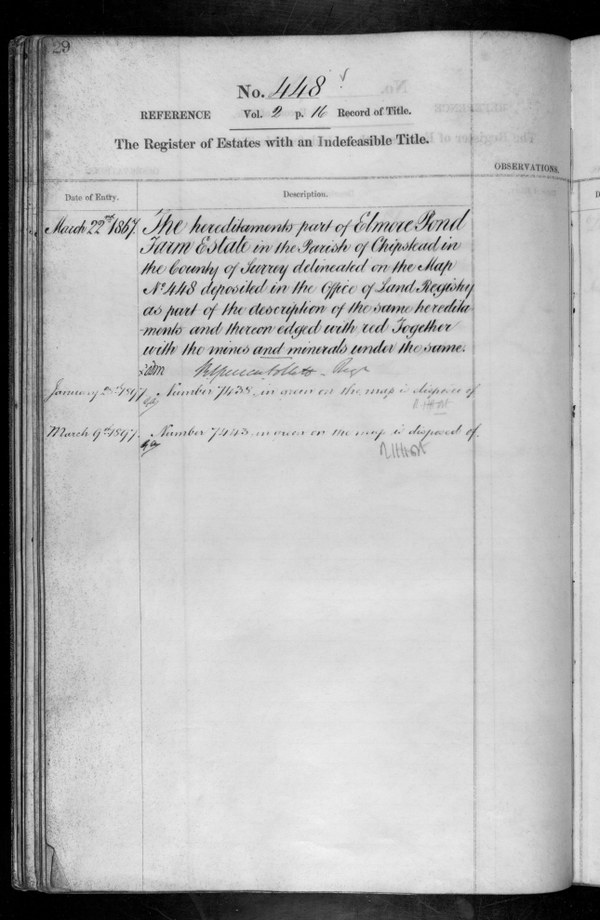 29
No. 448
REFERENCE Vol. 2 p. 16 Record of Title.
The Register of Estates with an Indefeasible Title.
OBSERVATIONS.
Date of Entry.
Description.
March 22nd 1867. The hereditaments part of Elmore Pond
Farm Estate in the Parish of Chipstead in
the County of Surrey delineated on the Map
No 448 deposited in the Office of Land Registry
as part of the description of the same heredita-
ments and thereon edged with red Together
with the mines and minerals under the same.
January 2nd 1897. Number 7438, in green on the map is disposed of
March 9th 1897. Number 7443 in green on the map is disposed of.